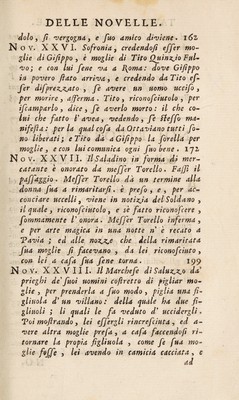 DELLE NOVELLE.
dolo, si vergogna, e suo amico diviene. 162
NOV. XXVI. Sofronia, credendosi esser mo-
glie di Gisippo, è moglie di Tito Quinzio Ful-
vo; e con lui sene va a Roma: dove Gisippo
in povero stato arriva, e credendo da Tito es-
ser disprezzato, sè avere un uomo ucciso,
per morire, afferma. Tito, riconosciutolo, per
iscamparlo, dice, sè averlo morto: il che co-
lui che fatto l'avea, vedendo, sè stesso ma-
nifesta: per la qual cosa da Ottaviano tutti so-
no liberati; e Tito dà a Gisippo la sorella per
moglie, e con lui comunica ogni suo bene. 172
NOV. XXVII. Il Saladino in forma di mer-
catante è onorato da messer Torello. Fassi il
passaggio. Messer Torello dà un termine alla
donna sua a rimaritarsi. è preso, e, per ac-
conciare uccelli, viene in notizia del Soldano,
il quale, riconosciutolo, e sè fatto riconoscere,
sommamente l'onora. Messer Torello inferma,
e per arte magica in una notte n'è recato a
Pavia; ed alle nozze che della rimaritata
sua moglie si facevano, da lei riconosciuto,
con lei a casa sua sene torna. 199
NOV. XXVIII. Il Marchese di Saluzzo da'
prieghi de' suoi uomini costretto di pigliar mo-
glie, per prenderla a suo modo, piglia una fi-
gliuola d'un villano: della quale ha due fi-
gliuoli; li quali le fa veduto d'uccidergli.
Poi mostrando, lei essergli rincresciuta, ed a-
vere altra moglie presa, a casa faccendosi ri-
tornare la propia figliuola, come se sua mo-
glie fusse, lei avendo in camicia cacciata, e
ad